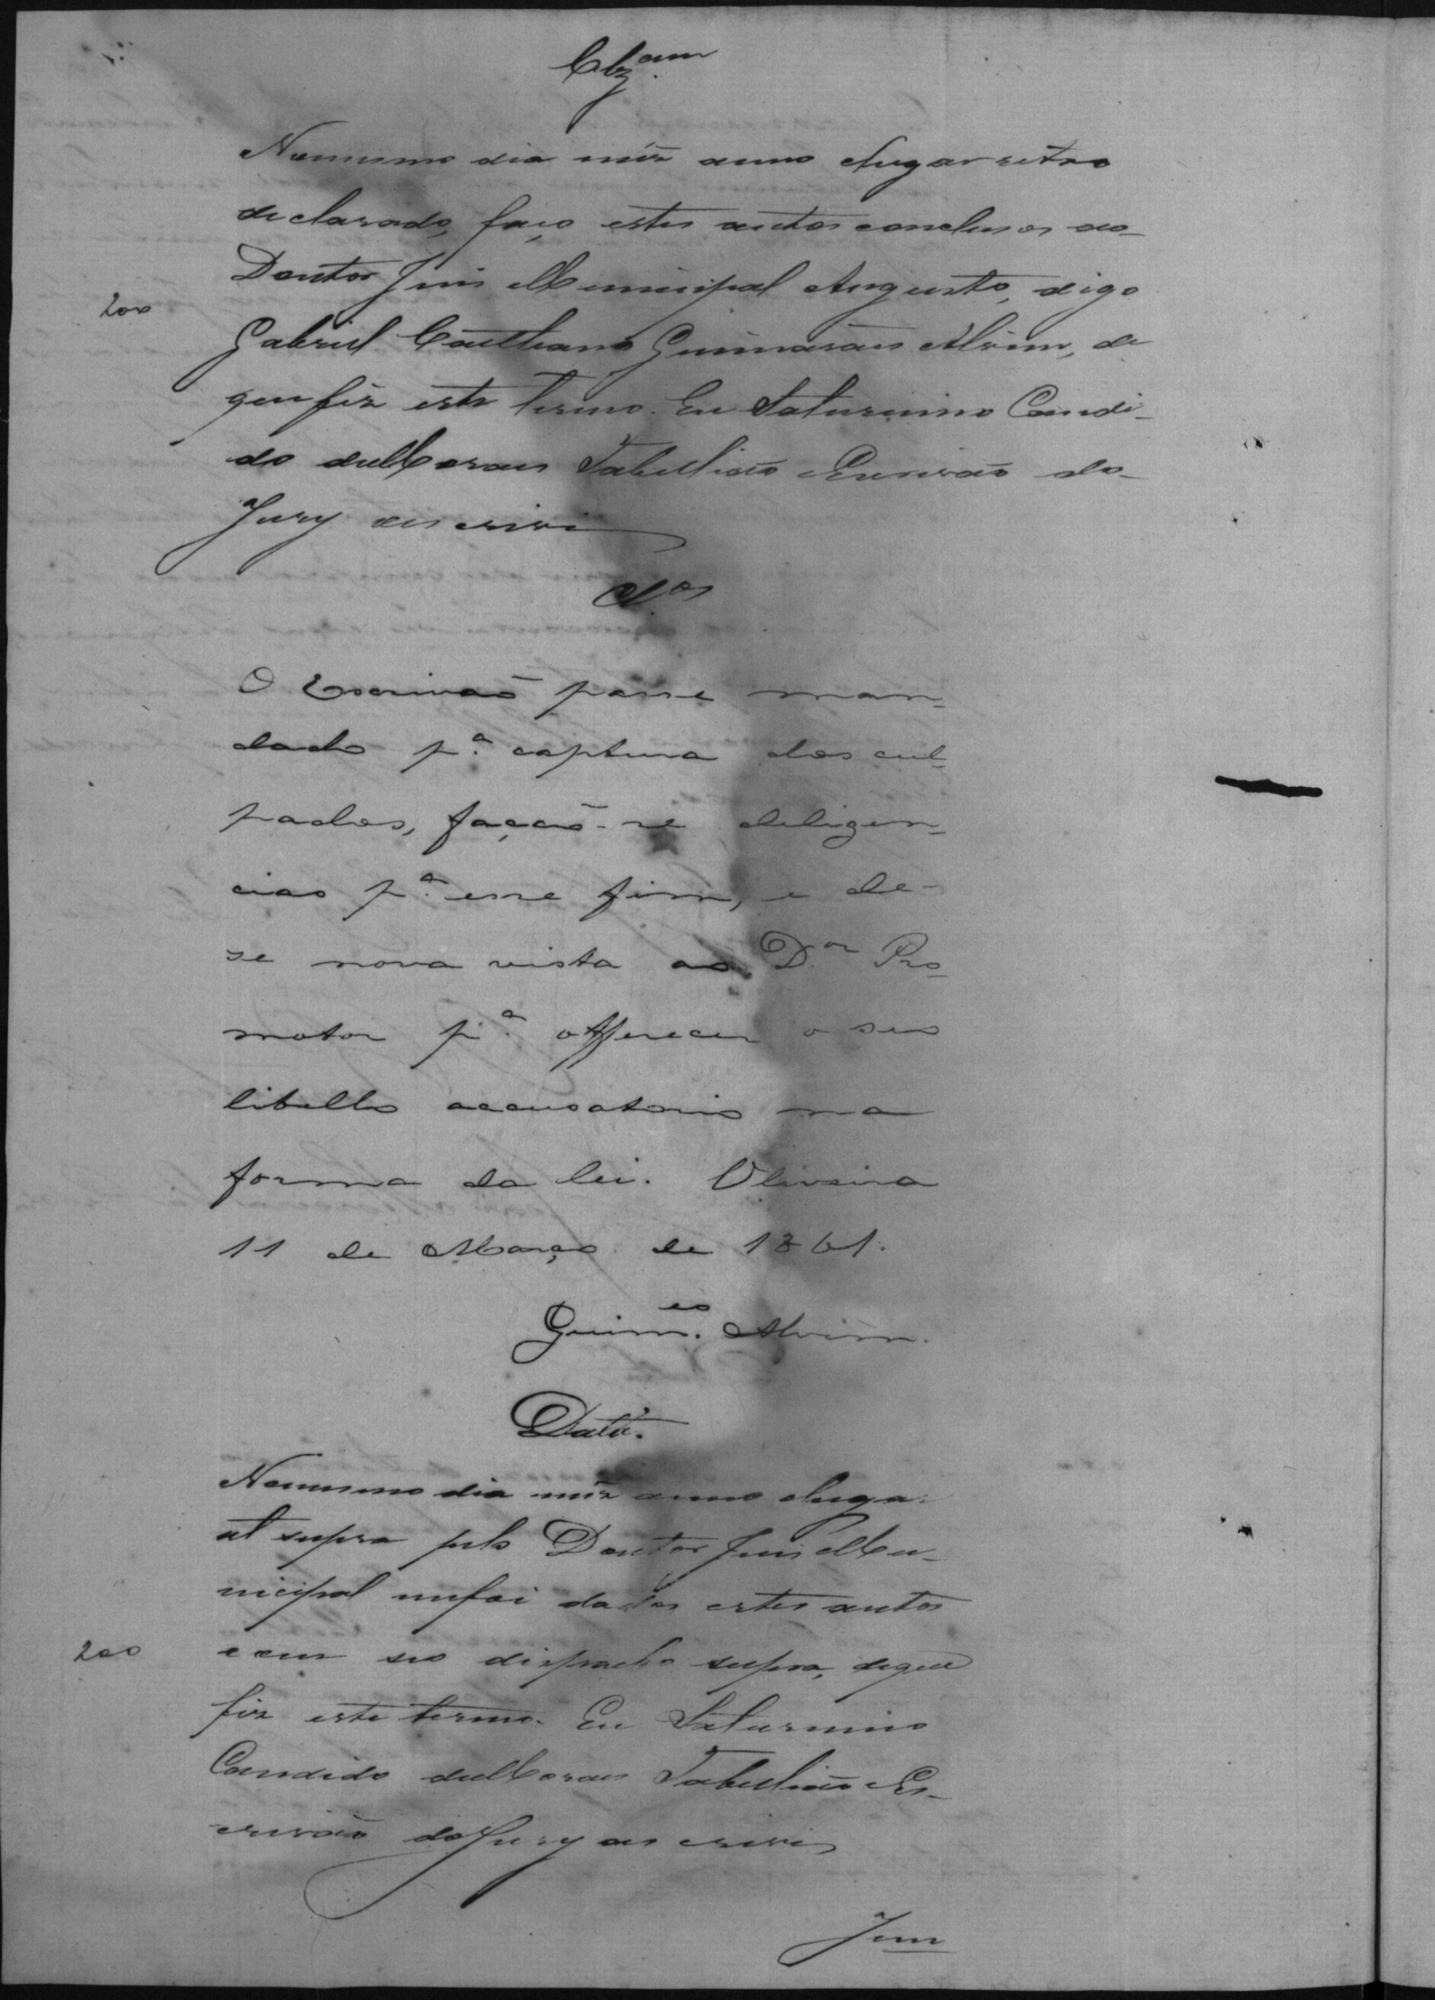 Clz.am
Nomesmo dia mêz anno elugar retro
declarado, faço estes autos conclusos ao
Doutor Juis Municipal Augusto, digo
200
Gabriel Caetano Guimarães Alvim, de
que fiz este termo. Eu Saturnino Candi-
do deMoraes Tabellião eEscrivão do
Jury oescrivi
Cl.os
O Escrivaõ passe man-
dado p.a captura dos cul-
pados, façaõ-se deligen-
cias p.a esse fim, e de-
se nova vista ao D.or Pro-
motor p.a offerecer o seu
libello accusatorio na
forma da lei. Oliveira
11 de Março de 1861.
Guim.es Alvim.
Data.
Nomesmo dia mêz anno elugar
ut supra pelo Doutor Juis Mu-
nicipal mefoi dados estes autos
200
com seo dispacho supra, deque
fiz este termo. Eu Saturnino
Candido deMoraes Tabellião eEs-
crivão doJury oescrivi
Jun